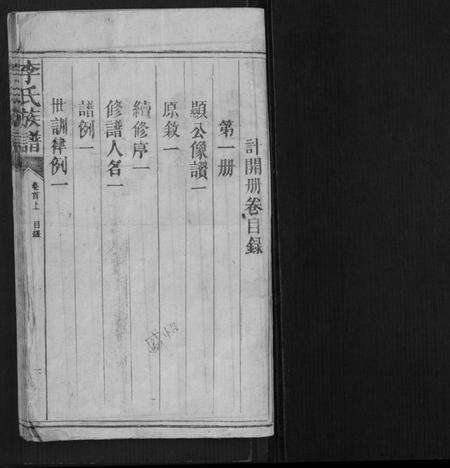 計開册卷目録
第一册
顯公像讚一
原敘一
續修序一
修譜人名一
譜例一
世訓律例一
李氏族譜
卷首上 目録